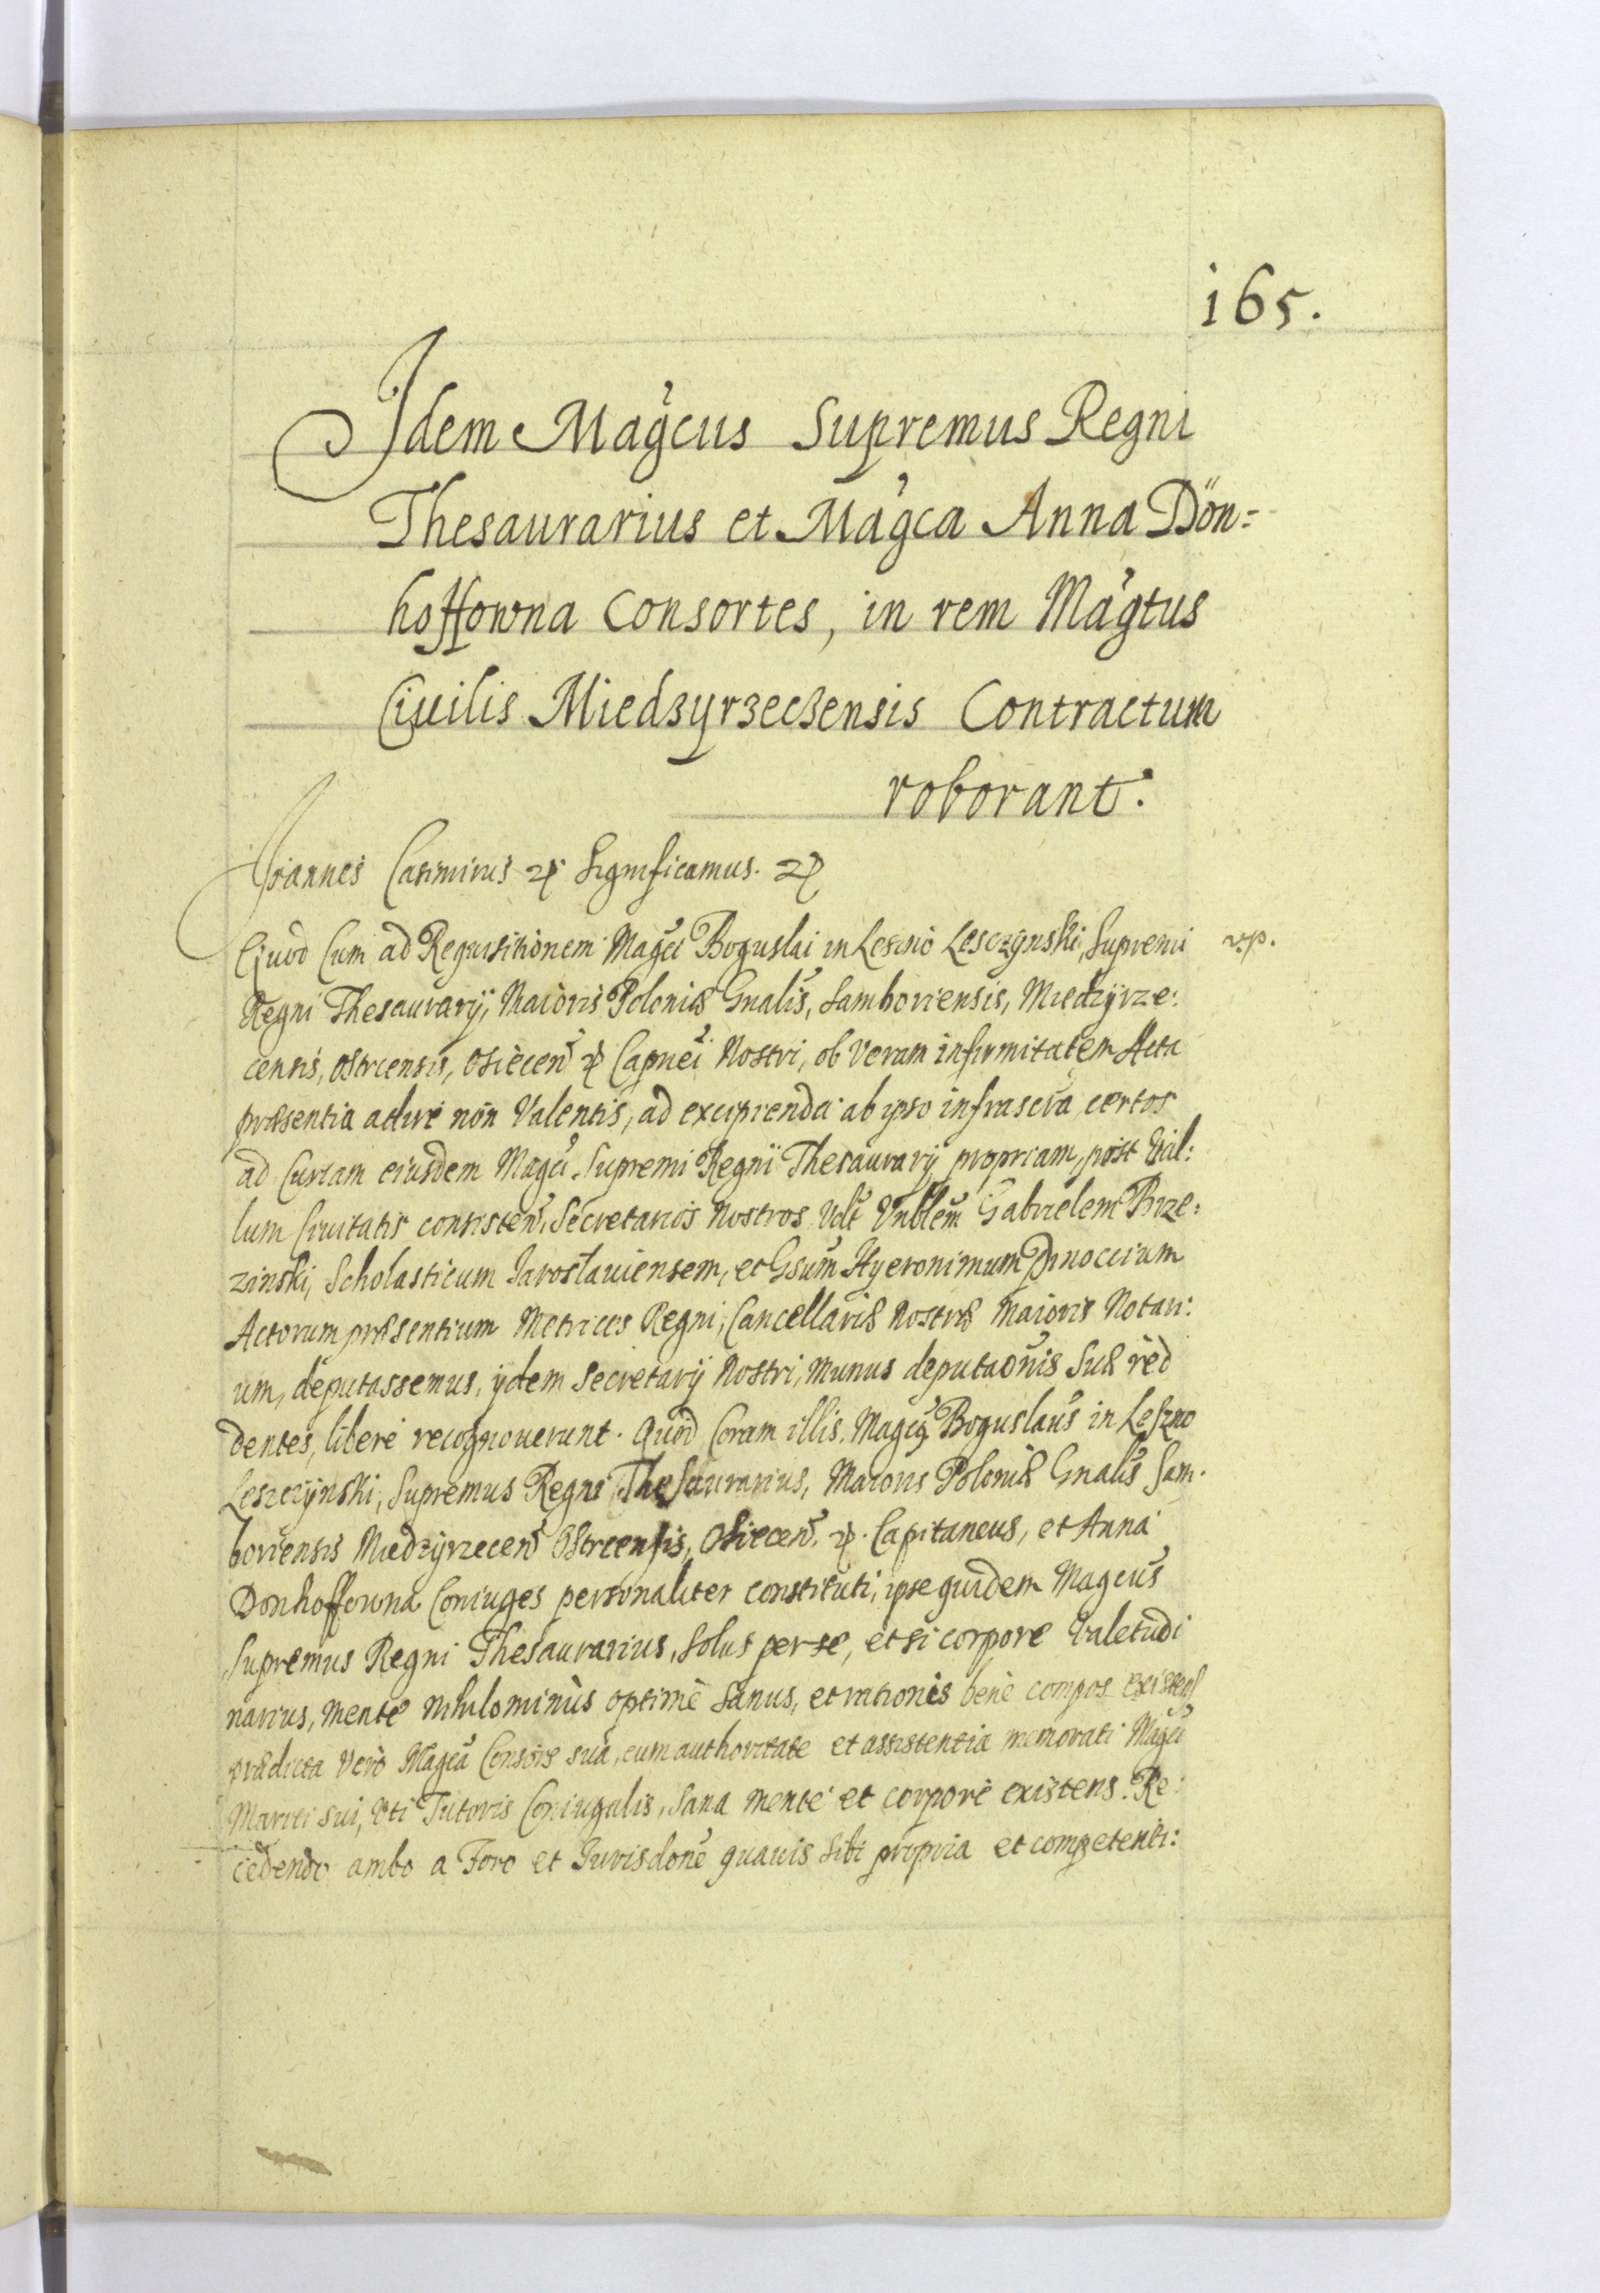 165.
Idem Magcus Supremus Regni
Thesaurarius et Magca Anna Dön=
hoffowna Consortes, in rem Magtus
Ciuilis Miedzyrzeczensis Contractum
roborant.
Joannes Casimirus Significamus.
Quod Cum ad Requisitionem Magci Boguslai in Leszno Lesczÿnski, Supremi
Regni Thesaurarÿ, Maioris Poloniæ Gnalis, Samboriensis, Miedzÿrze:
censis, Ostrcensis, Osiecen Capnei Nostri, ob Veram infirmitatem Acta
præsentia adire non Valentis, ad excipienda ab ipso infrascra certos
ad Curiam eiusdem Magci Supremi Regni Thesaurarÿ propriam, post Val:
lum Ciuitatis consisten, Secretarios Nostros Gabrielem Prze:
zinski, Scholasticum Jaroslauiensem, et Gsum Hyeronimum Pinoccium
Actorum præsentium Metrices Regni, Cancellariæ Nostræ Maioris Notari:
um, deputassemus, ÿdem Secretarÿ Nostri, Munus deputaonis Suæ red
dentes, libere recognouerunt. Quod Coram illis, Magcus Boguslaus in Leszno
Leszczÿnski, Supremus Regni Thesaurarius, Maioris Poloniæ Gnalis Sam.
boriensis Miedzÿrzecen Ostrcensis, Osiecen. Capitaneus, et Anna
Donhoffowna Coniuges personaliter constituti, ipse quidem Magcus
Supremus Regni Thesaurarius, Solus per se, etsi corpore Valetudi
narius, Mente Nihilominus optime Sanus, et rationis bene compos existens
prædicta Vero Magca Consors sua, cum authoritate et assistentia memorati Magci
Mariti sui, Vti Tutoris Coniugalis, Sana mente et corpore existens. Re:
cedendo ambo a Foro et Jurisdone quauis Sibi propria et competenti: